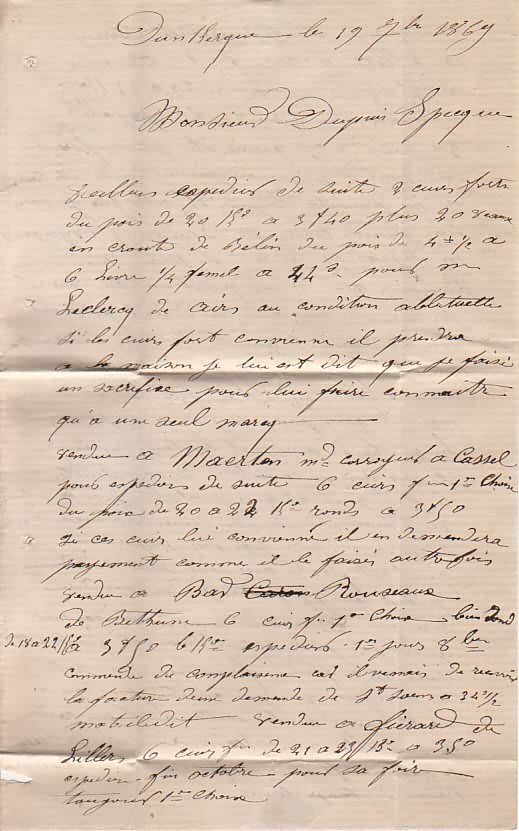 Dunkerque le 19 7bre 1869
Monsieur Dupuis Specque
veuillez expedier de suite 2 cuirs forts
du pois de 20 Ko a 3f40 plus 20 veaux
en crout de du pois de 4 1/2 a
6 Livre 1/4 femel a 44d pour m
Leclercq de Airs au condition abbituelle
si les cuirs fort convienne il prendra
a la maison je lui est dit que je faisi
un sacrifice pour lui faire connaitre
qu'a une seul marq
vendu a Maerten md corroyeur a Cassel
pour expedier de suite 6 cuirs 1er Choix
du pois de 20 a 22 Ko ronds a 3f50
si ces cuir lui convienne il en demendera
payement comme il le faisi autrefois
vendu a Bar Caron Rouseaux
de Bethune 6 cuir 1er Choix bien rond
de 18 a 22 Ko a 3f50 le Ko expedier 1er jours 8bre
commende de complaisence il venais de recevoir
la facture dune demande de St a 34 1/2
vendu a Gierard de
Lillers 6 cuirs de 21 a 23 Ko a 3 50
expedier fin octobre pour sa foir
toujours 1er Choix